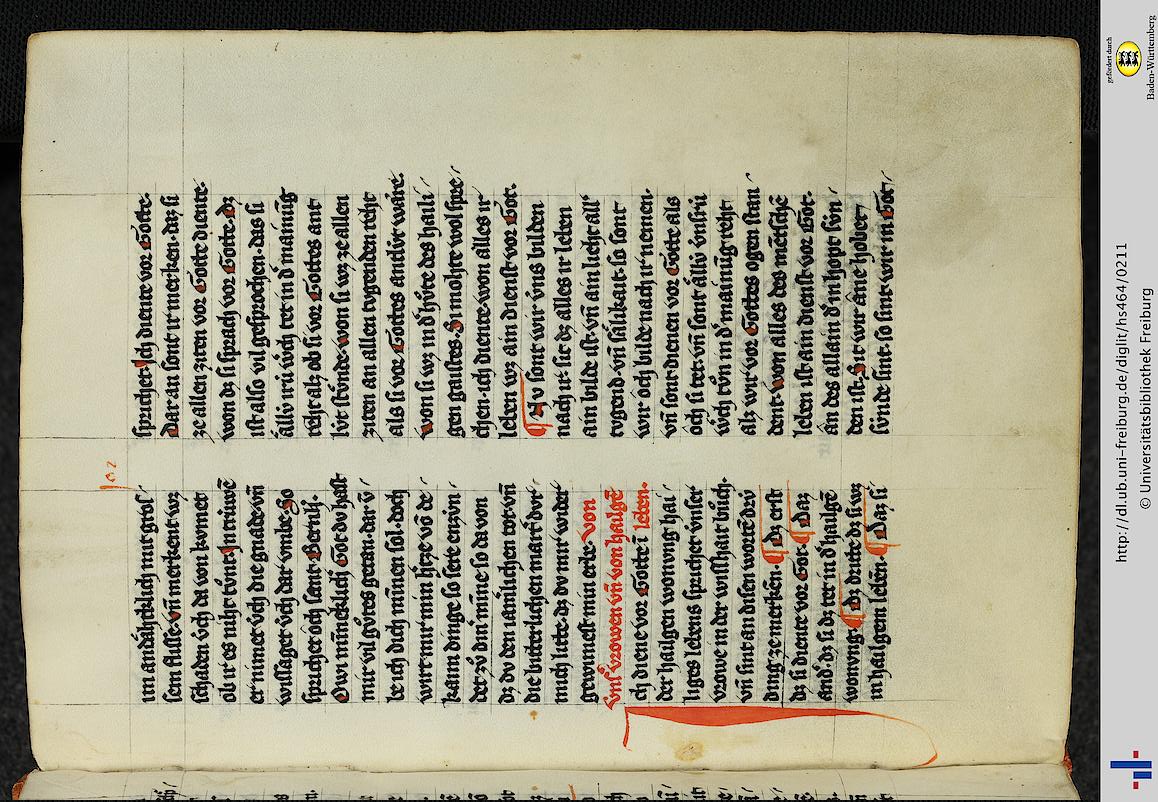 102
im andæhtklich mit grosˊ
sem flisse. vn̄ merkent wz
schaden v́ch da von komet
ob ir es niht tv̊nt. In trúwē
er nimet v́ch die gnade. vn̄
wissaget v́ch dar vmbe. So
sprichet och sant Bernh.
O wi minneklich Got dv hast
mir vil gv̊tes getan. dar vˊ
be ich dich minnen sol. doch
wirt mir min h̓ze vō deˊ
kaim dinge so sere enzv́nˊ
det zv̊ din̄ minne so da von
dz dv den iæmlichen tot. vn̄
die bitterlichen mart̓ dvrˊ
mich litte. dz dv mir wider
gewinnest min erbe. von
vns̓ vrowen vn̄ von hailgē
leben.
Ich diene vor Gotte ī
der hailgen wonvng haiˊ
liges lebens sprichet vnser
vrowe in der wishait bv̊ch.
vn̄ sint an disen worten drv́
ding ze merken. Dz erst
dz si diente vor Got. Daz
and̓ dz si dz tet in d̓ hailgē
wonvng. Dz dritte dz si wz
in hailgem leben. Daz si
sprichet. Ich diente vor Gotte.
Dar an sont ir merken. daz si
ze allen ziten vor Gotte diente.
won dz si sprach vor Gotte. dz
ist als vil gesprochen. das si
állv́ irv́ wˊch tet in d̓ mainūg
reht alz ob si vor Gottes ant
lv́t stv̊nde. won si wz ze allen
ziten an allen tvgenden reht
als si vor Gottes antlv́t wære.
won si wz in d̓ hv̊te des hailiˊ
gen gaistes. Si mohte wol spreˊ
chen. ich diente. won alles ir
leben wz ain dienst vor Got.
Nv sont wir v́ns bilden
nach ir. sit dz alles ir leben
ain bilde ist. vn̄ ain lieht all̓
tvgend vn̄ sálikait. so sont
wir och bilde nach ir nemen.
vn̄ sonn dienen vor Gotte als
och si tet. vn̄ sont állv́ vnsrv́
wˊch tv̊n in d̓ mainūg reht
alz wir vor Gottes ogen stanˊ
dent. won alles des mētschē
leben ist ain dienst vor Got.
ân des allain d̓ in hopt sv́nˊ
den ist. Sit wir âne hobetˊ
sv́nde sint. so sint wir in Gotˊ
http://dl.ub.uni-freiburg.de/diglit/hs464/0211
© Universitätsbibliothek Freiburg
gefördert durch
Baden-Württemberg